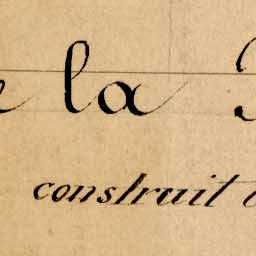 la
construit